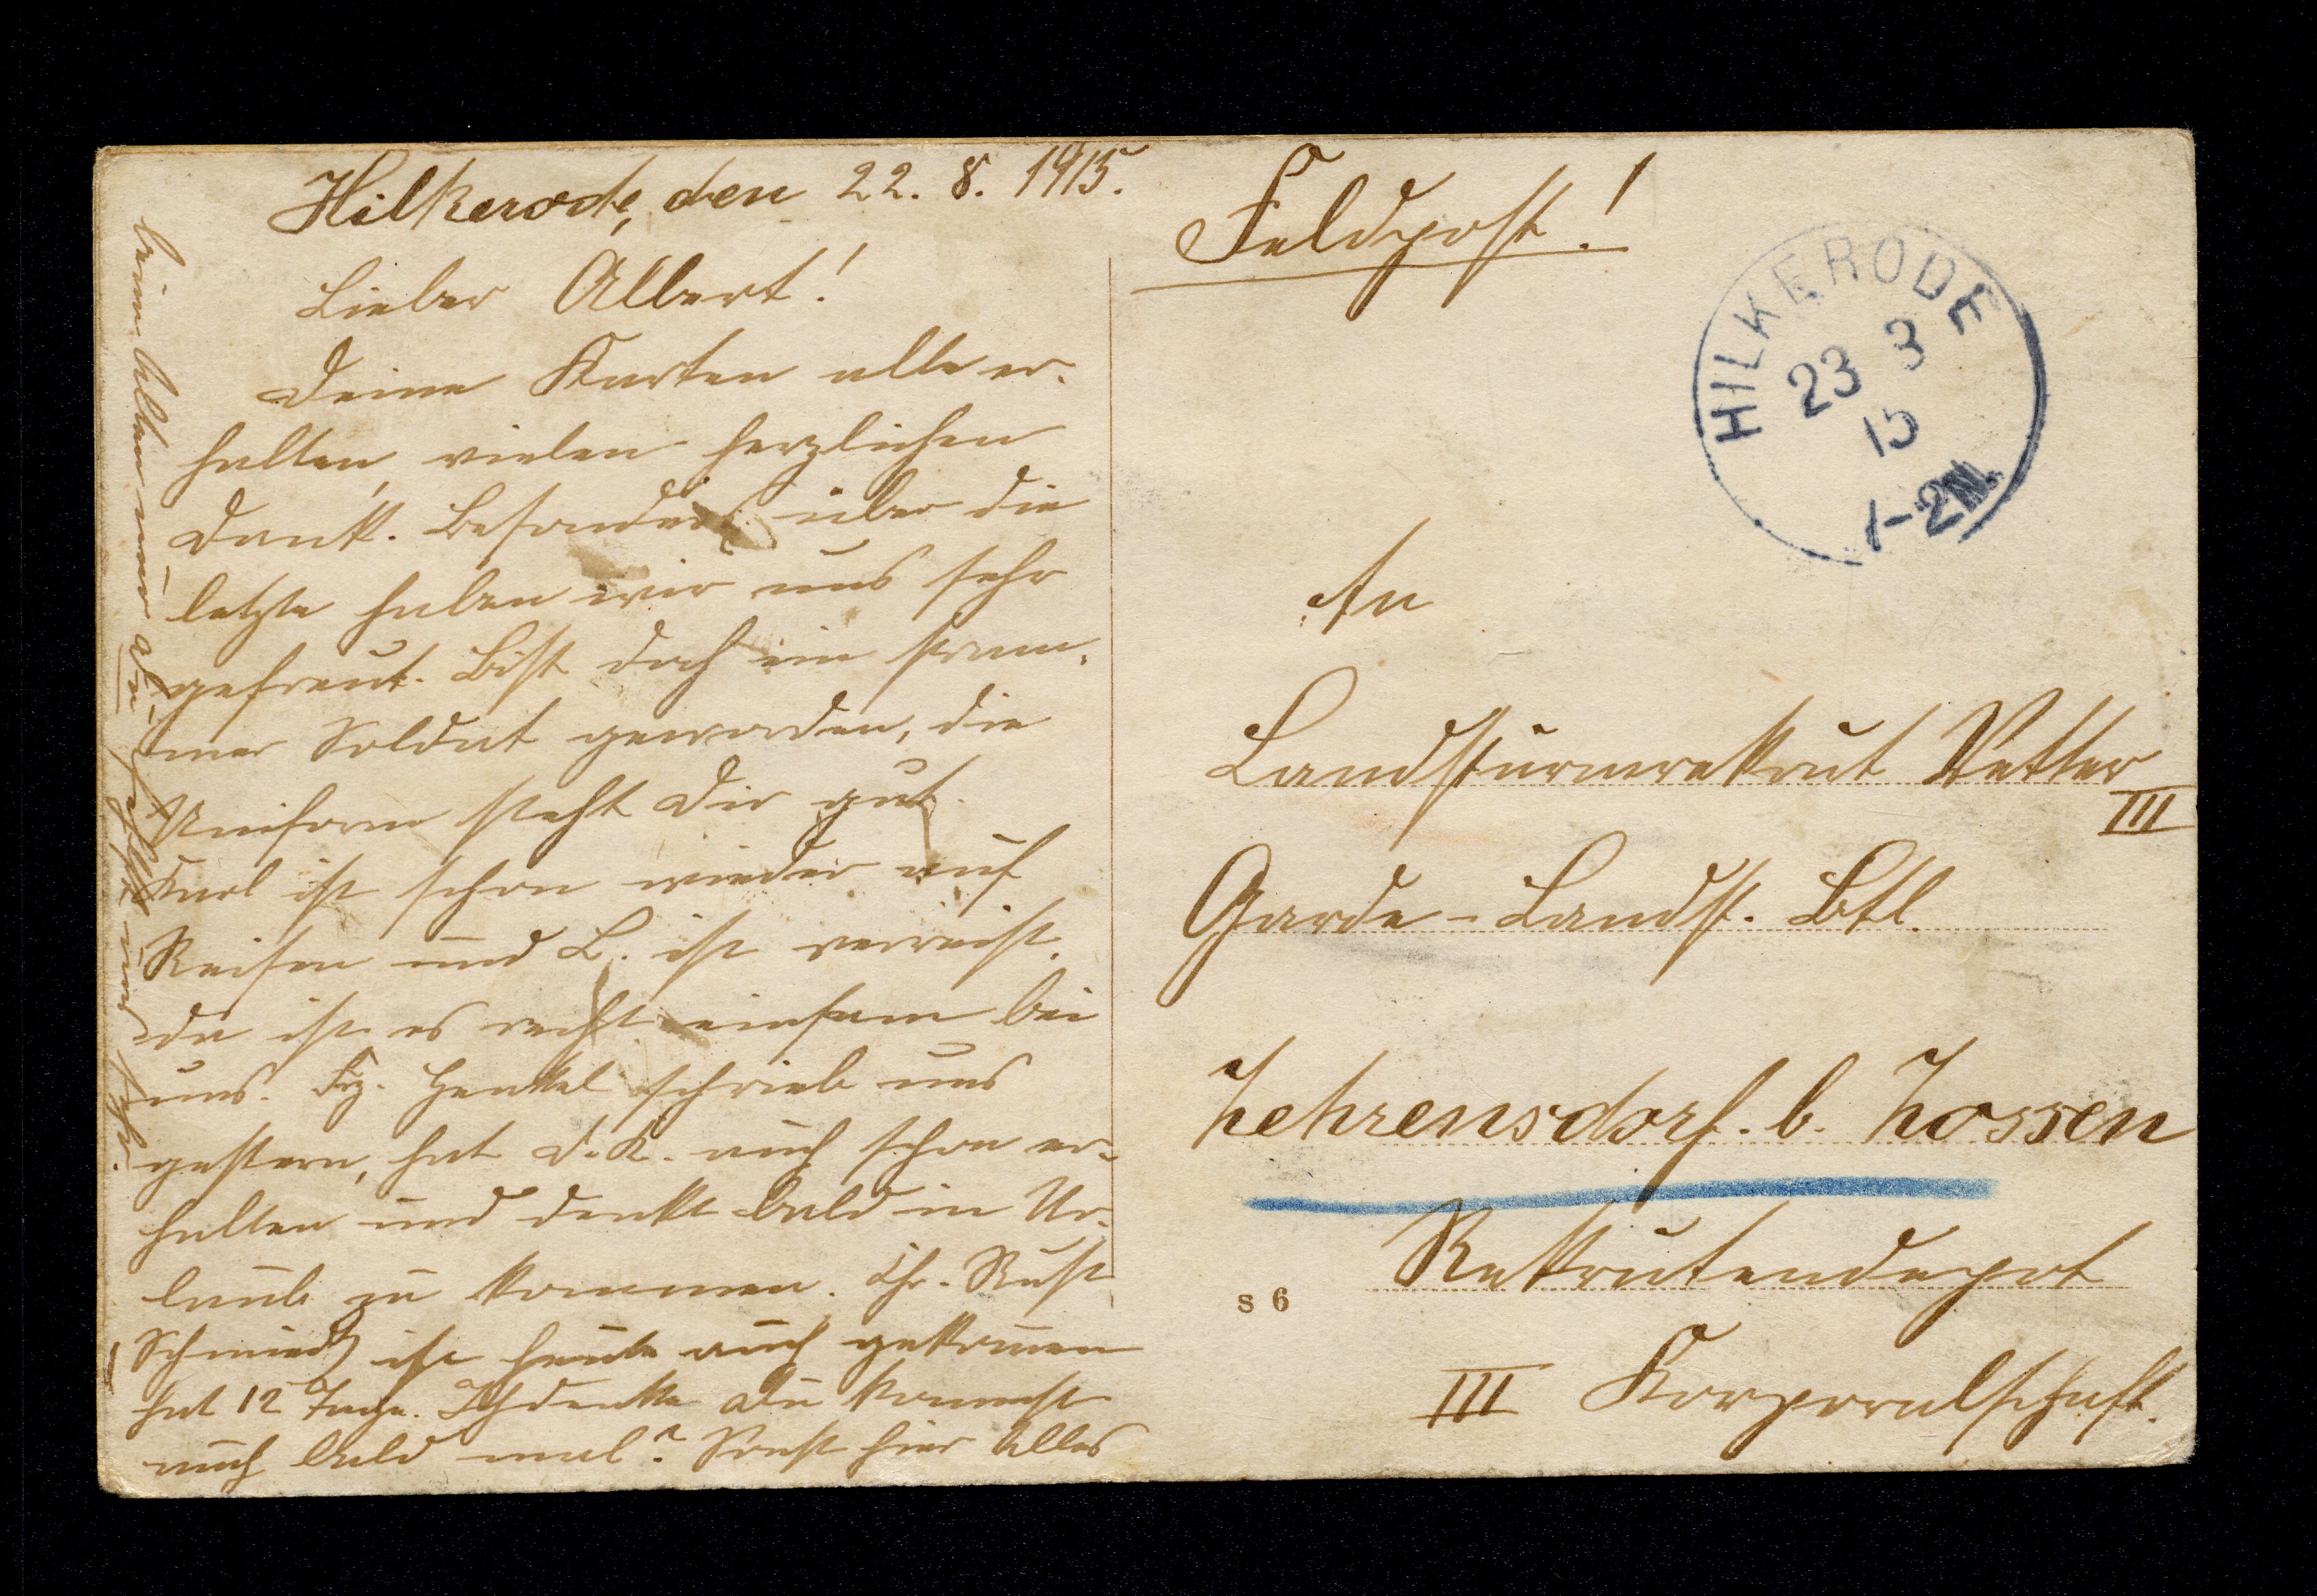 Hilkerode, den 22. 8. 1915.
Lieber Albert!
Deine Karten alle er-
halten, vielen herzlichen
Dank. Besonders über die
letzte haben wir uns sehr
gefreut. Bist doch ein stram-
mer Soldat geworden, die
Uniform steht Dir gut.
Karl ist schon wieder auf
Reisen und L. ist verreist,
da ist es recht einsam bei
uns. Frz. Henkel schrieb uns
gestern, hat d. K. auch schon er-
halten und denkt bald in Ur-
laub zu kommen. Chr. Rust
Schmied ist heute auch gekommen
hat 12 Tage. Ich denke Du kommst
auch bald mal? Sonst hier Alles
beim Alten nur Du fehlst uns sehr.
Feldpost!
HILKERODE
23 8
15
1-2N.
An
Landsturmrekrut Vetter
III
Garde-Landst. Btl.
Zehrensdorf. b. Zossen
Rekrutendepot
III Korporalschaft.
S 6